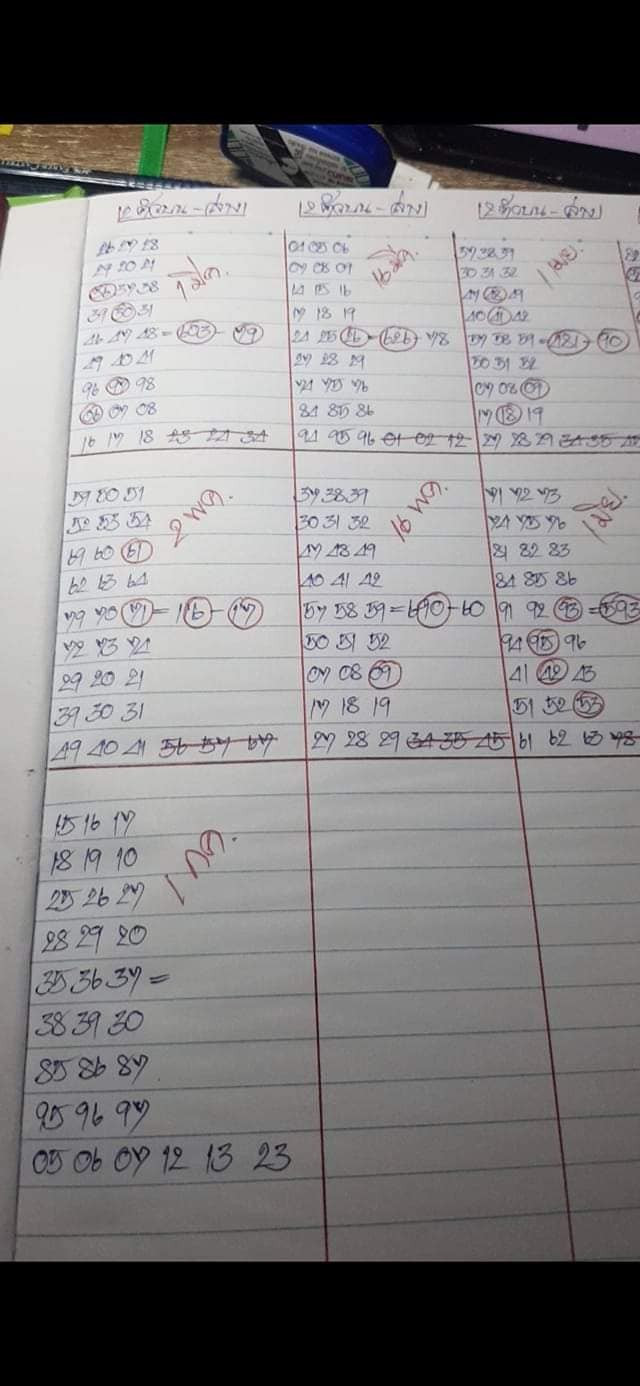 2 ตัวบน-ล่าง
26 27 28
29 20 21
1 มีค.
36 37 38
39 30 31
46 47 48 = 603 - 79
49 40 41
96 97 98
06 07 08
16 17 18 23 24 34
2 ตัวบน-ล่าง
04 05 06
16 มีค.
07 08 09
14 15 16
17 18 19
24 25 26 = 626 - 78
27 28 29
74 75 76
84 85 86
94 95 96 01 02 12
2 ตัวบน-ล่าง
37 38 39
1 เมย.
30 31 32
47 48 49
40 41 42
57 58 59 = 481 - 90
50 51 52
07 08 09
17 18 19
27 28 29 34 35
59 50 51
2 พค.
52 53 54
69 60 61
62 63 64
79 70 71 = 116 - 17
72 73 74
29 20 21
39 30 31
49 40 41 56 57 67
37 38 39
16 พค.
30 31 32
47 48 49
40 41 42
57 58 59 = 690 - 60
50 51 52
07 08 09
17 18 19
27 28 29 34 35 45
71 72 73
1 มิย.
74 75 76
81 82 83
84 85 86
91 92 93 = 593
94 95 96
41 42 43
51 52 53
61 62 63 78
15 16 17
1 กค.
18 19 10
25 26 27
28 29 20
35 36 37 =
38 39 30
85 86 87
95 96 97
05 06 07 12 13 23